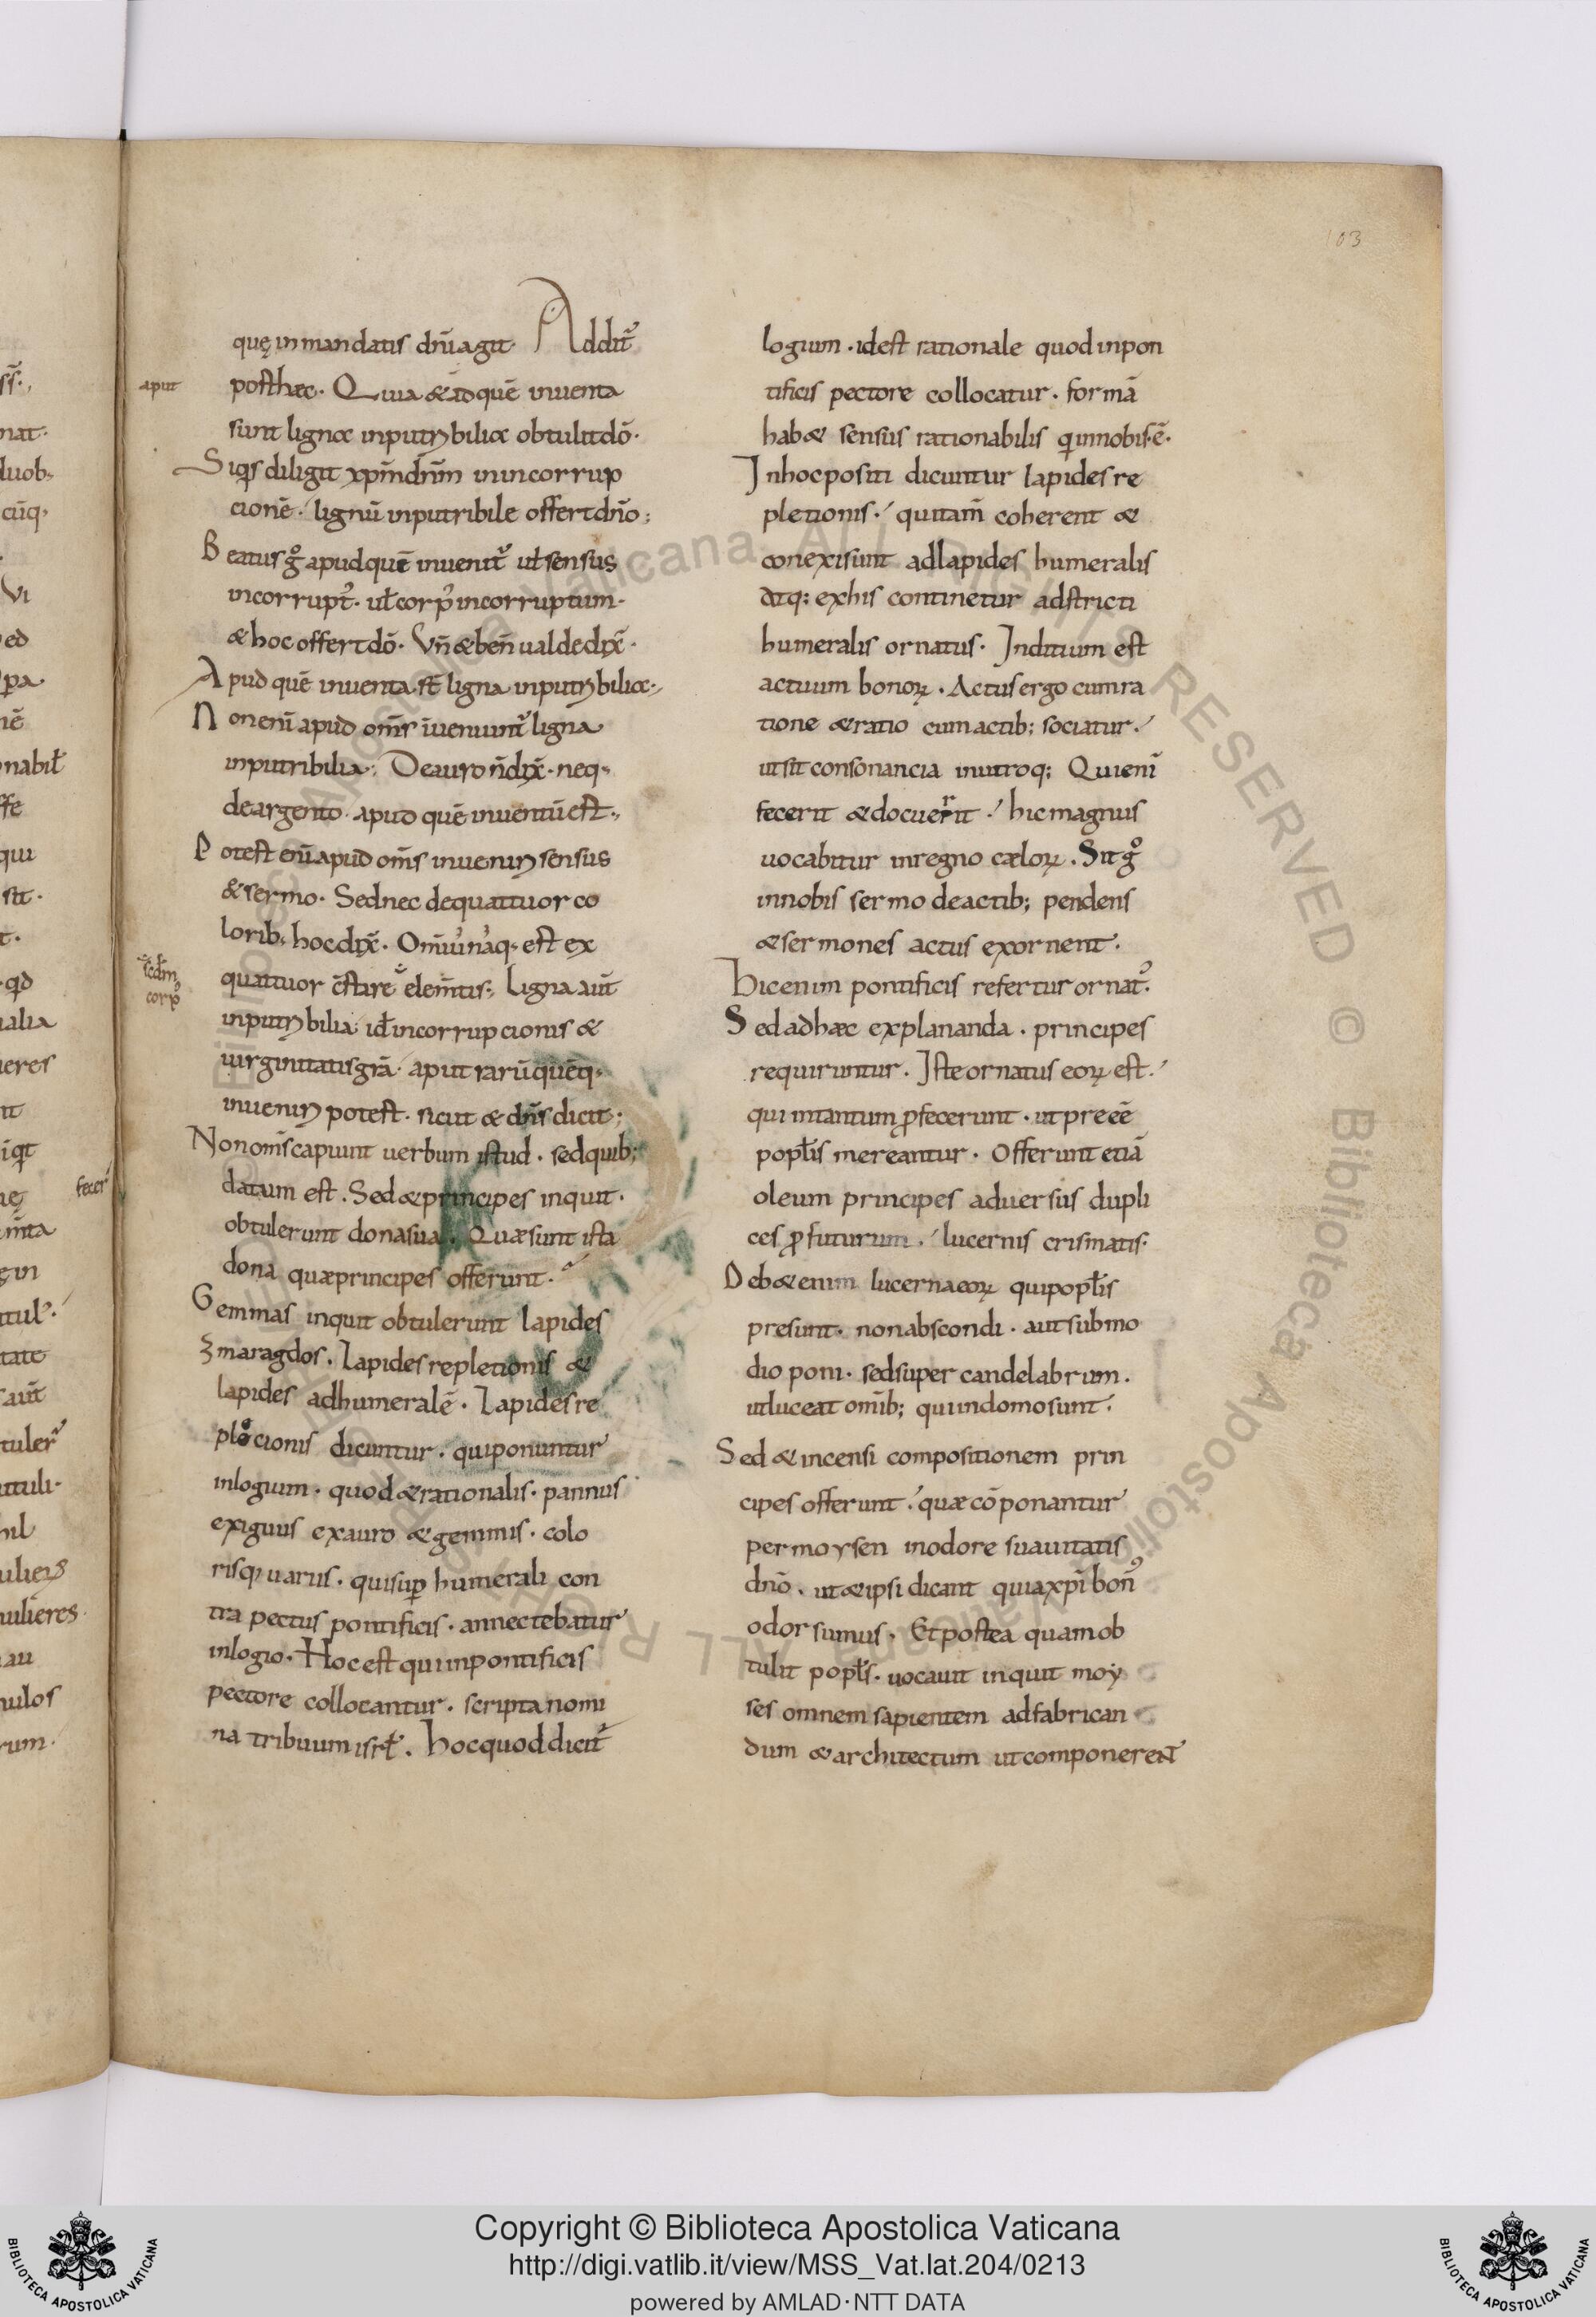 103
quę in mandatis dñi agit. Addit᷒
aput
posthæc. Quia & ad quē inventa
sunt ligna inputribilia obtulit dõ.
Siqs diligit xpm̄ dnm̄ inincorrup
cionē. lignū inputribile offert dño;
Beatus gͦ apud quē invenit᷒ ul sensus
incorrupt᷒. ul corp᷒ incorruptum.
& hoc offert dõ. Vñ & beñ ualde dix̄.
Apud quē inventa st̄ ligna inputribilia.
Non enī apud om̄s īueniunt᷒ ligna
inputribilia; De auro n̄ dix̄. neq;
de argento. apud quē inventū est.
Potest enī apud om̄s inveniri sensus
& sermo. Sed nec de quattuor co
lorib; hoc dix̄. Om̄ium naq; est ex
scdm̄ corp᷒
quattuor c̄stare elem̄tis; Ligna aūt
inputribilia id incorrupcionis &
uirginitatis grā. aput rarū quēq;
inueniri potest. sicut & dn̄s dicit;
Non om̄s capiunt uerbum istud. sed quib;
datum est. Sed & principes inquit.
obtulerunt dona sua. Quæ sunt ista
dona quæ principes offerunt.
Gemmas inquit obtulerunt lapides
zmaragdos. Lapides repletionis &
lapides adhumeralē. Lapides re
plecionis dicuntur. qui ponuntur
inlogium. quod & rationalis. pannus
exiguus ex auro & gemmis. colo
risq; uarius. qui sup humerali con
tra pectus pontificis. annectebatur
inlogio. Hoc est qui in pontificis
pectore collocantur. scripta nomi
na tribuum isrł. hoc quod dicit᷒
logium. id est rationale quod in pon
tificis pectore collocatur. formā
hab& sensus rationabilis q in nobis ē.
In hoc positi dicuntur lapides re
pletionis. qui tam̄ coherent &
conexi sunt ad lapides humeralis
atq; ex his continetur adstricti
humeralis ornatus. Inditium est
actuum bonoꝝ. Actus ergo cum ra
tione & ratio cum actib; sociatur.
ut sit consonancia in utroq; Qui enī
fecerit & docuerit. hic magnus
uocabitur in regno cæloꝝ. Sit gͦ
in nobis sermo de actib; pendens
& sermones actus exornent.
Hic enim pontificis refertur ornat᷒.
Sed ad hæc explananda. principes
requiruntur. Iste ornatus eoꝝ est.
qui in tantum ꝓfecerunt. ut preeē
popłis mereantur. Offerunt etiā
oleum principes aduersus dupli
ces ꝓfuturum. lucernis crismatis.
Deb& enim lucerna eoꝝ qui popłis
presunt. non abscondi. aut sub mo
dio poni. sed super candelabrum.
ut luceat omīb; qui in domo sunt.
Sed & incensi compositionem prin
cipes offerunt. quæ cōponantur
per moysen in odore suauitatis
dnō. ut & ipsi dicant quia xp̄i bon᷒
odor sumus. Et postea quam ob
tulit popłs. uocauit inquit moy
ses omnem sapientem ad fabrican
dum & architectum ut componerent
Copyright © Biblioteca Apostolica Vaticana
http://digi.vatlib.it/view/MSS_Vat.lat.204/0213
powered by AMLAD·NTT DATA
BIBLIOTECA APOSTOLICA VATICANA
BIBLIOTECA APOSTOLICA VATICANA